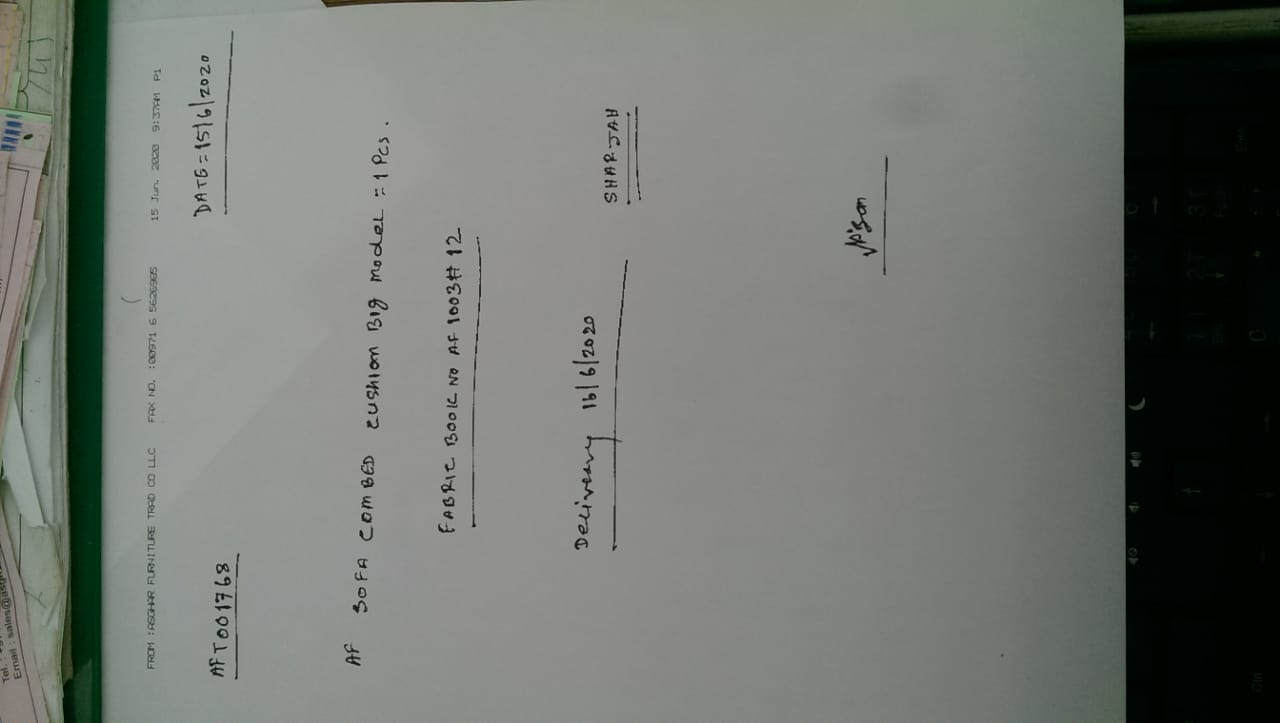 Tel.
Email : sales@asg
FROM :ASGHAR FURNITURE TRAD CO LLC FAX NO. :00971 6 5626985 15 Jun. 2020 9:37AM P1
DATE=15/6/2020
AFT001768
AF SOFA COMBED cushion Big model = 1 Pcs.
FABRIC BOOK NO AF 1003# 12
Deliveary 16/6/2020
SHARJAH